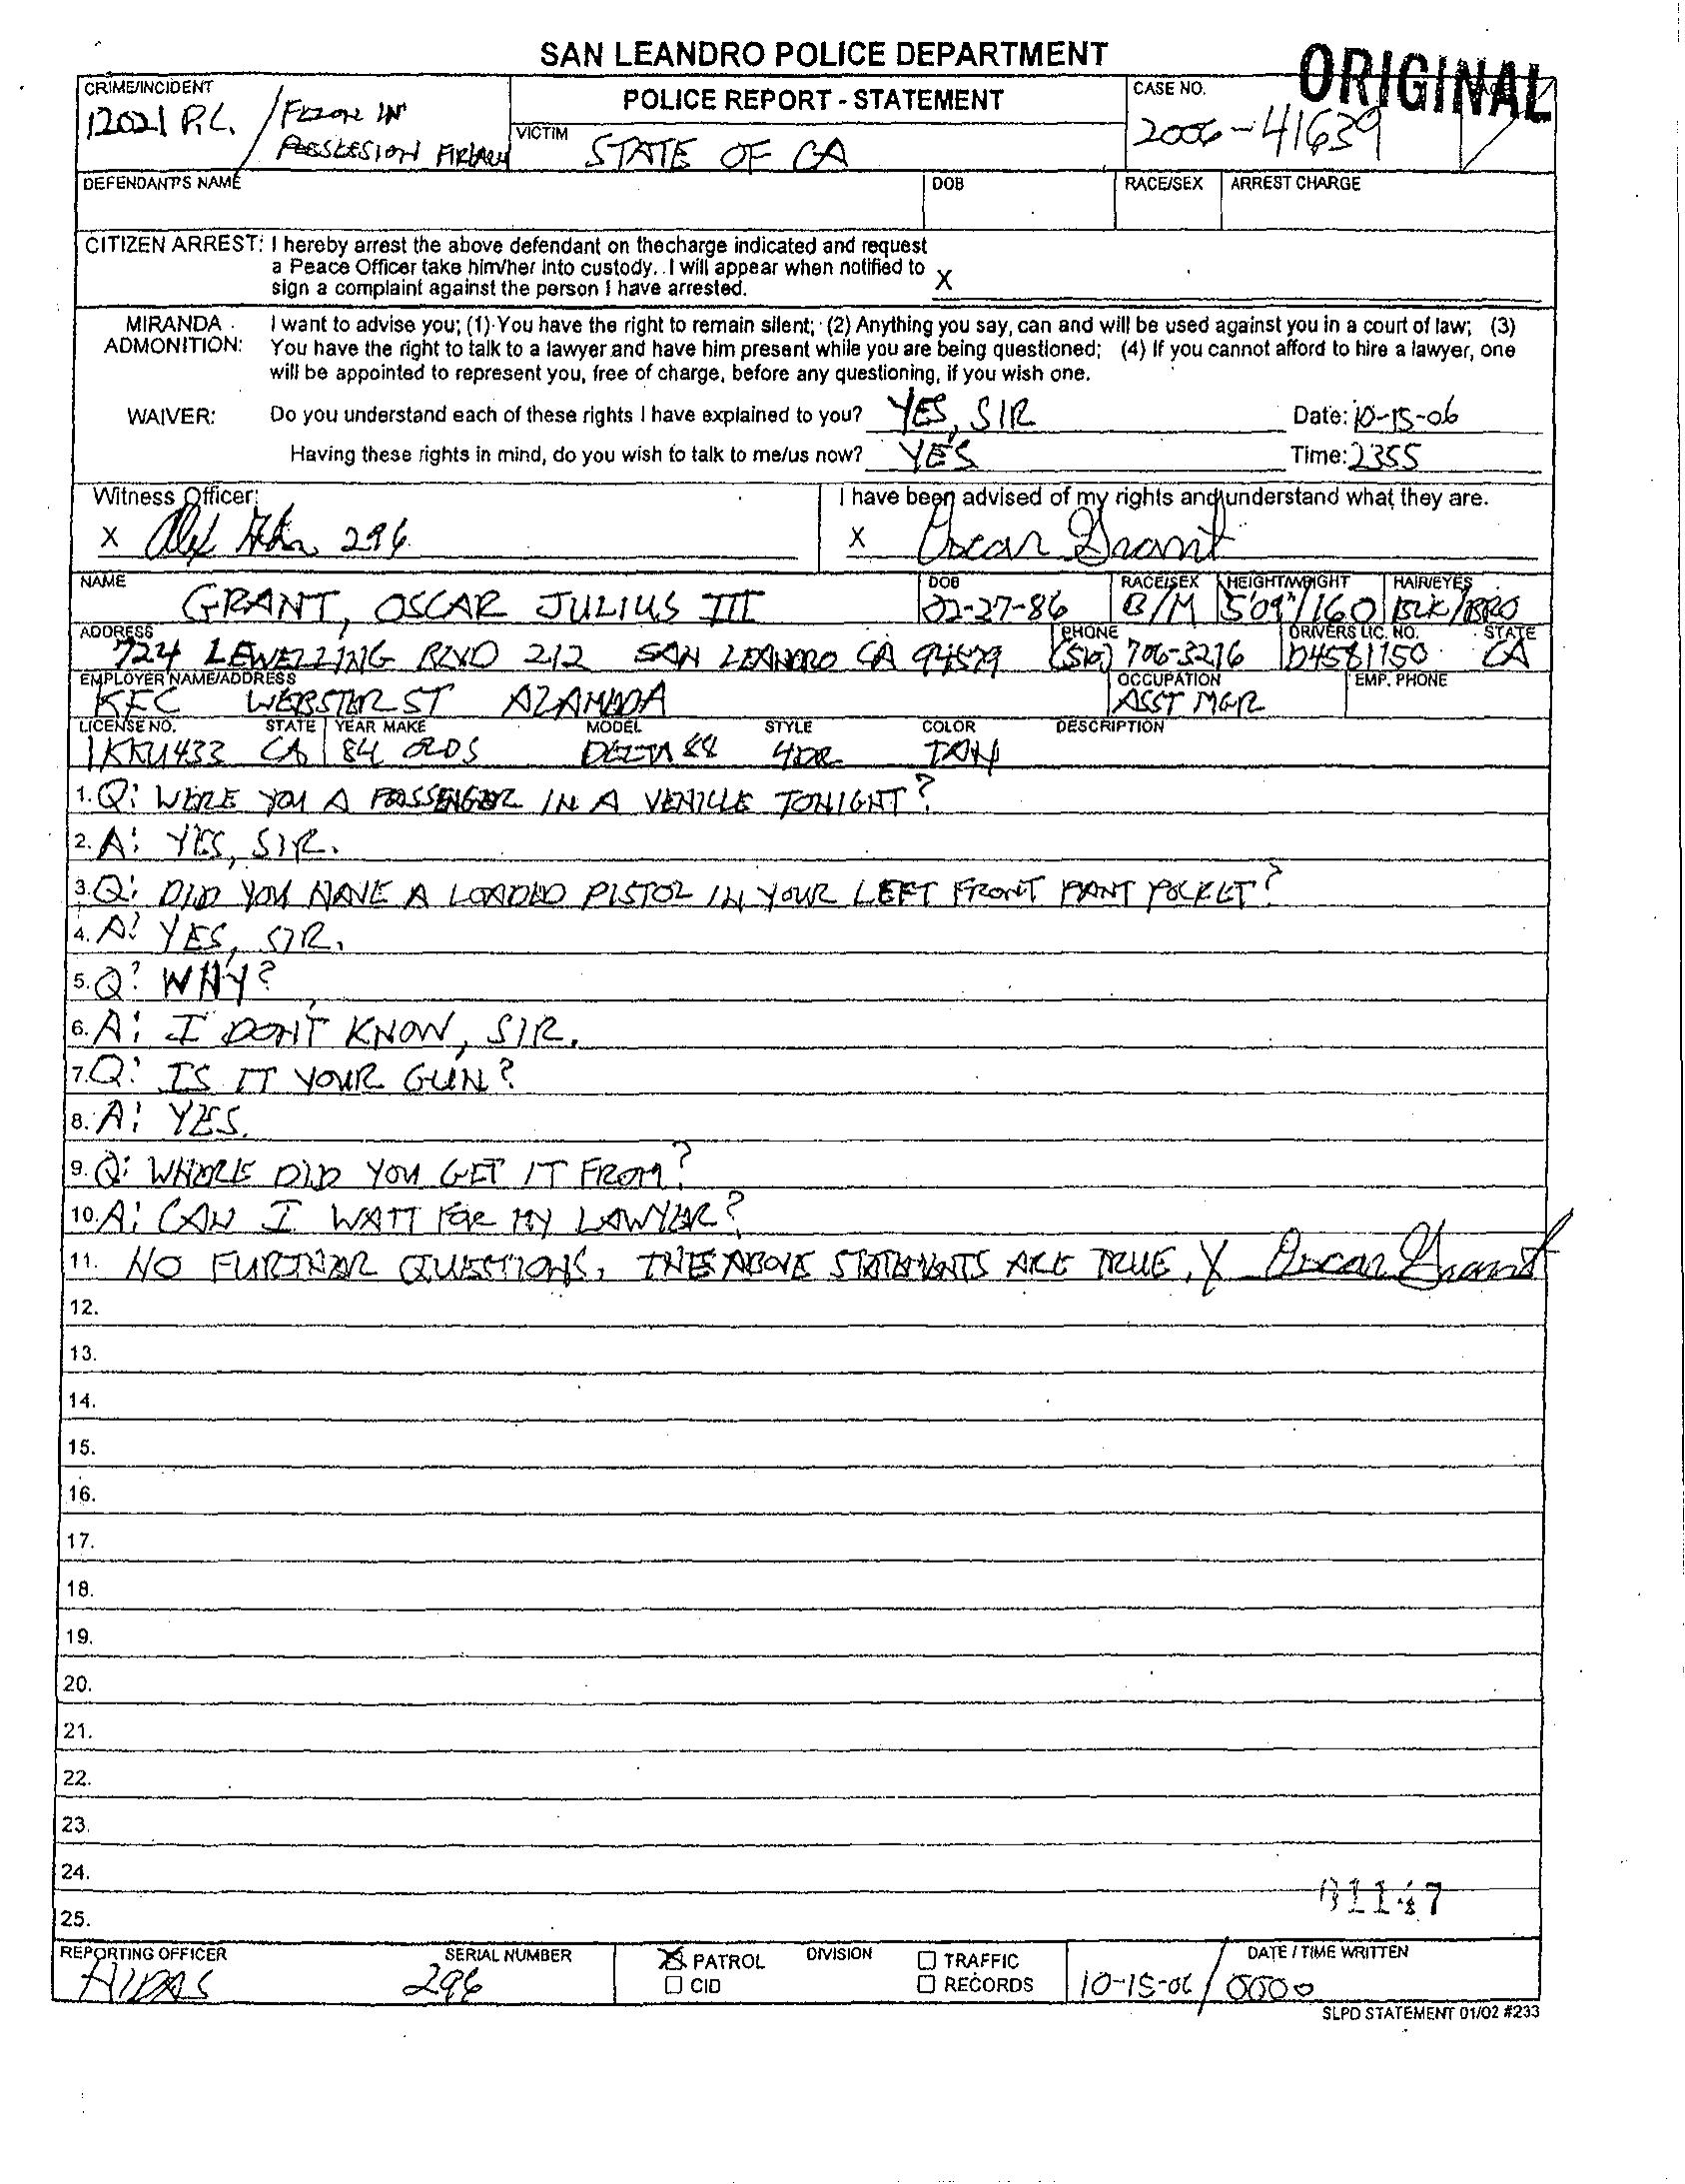 SAN LEANDRO POLICE DEPARTMENT
ORIGINAL
CRIME/INCIDENT
12021 P.C. / FELON IN
POSSESSION FIREARM
POLICE REPORT - STATEMENT
VICTIM STATE OF CA
CASE NO.
2006-41639
DEFENDANT'S NAME DOB RACE/SEX ARREST CHARGE
CITIZEN ARREST: I hereby arrest the above defendant on thecharge indicated and request
a Peace Officer take him/her into custody. I will appear when notified to
sign a complaint against the person I have arrested. X
MIRANDA ADMONITION: I want to advise you; (1) You have the right to remain silent; (2) Anything you say, can and will be used against you in a court of law; (3)
You have the right to talk to a lawyer and have him present while you are being questioned; (4) If you cannot afford to hire a lawyer, one
will be appointed to represent you, free of charge, before any questioning, if you wish one.
WAIVER: Do you understand each of these rights I have explained to you? YES, SIR Date: 10-15-06
Having these rights in mind, do you wish to talk to me/us now? YES Time: 2355
Witness Officer: I have been advised of my rights and understand what they are.
X 296 X Oscar Grant
NAME DOB RACE/SEX HEIGHT/WEIGHT HAIR/EYES
GRANT, OSCAR JULIUS III 02-27-86 B/M 5'09"/160 BLK/BRO
ADDRESS PHONE DRIVERS LIC. NO. STATE
724 LEWELLING BLVD 212 SAN LEANDRO CA 94579 (510) 706-3216 D4581150 CA
EMPLOYER NAME/ADDRESS OCCUPATION EMP. PHONE
KFC WEBSTER ST ALAMEDA ASST MGR
LICENSE NO. STATE YEAR MAKE MODEL STYLE COLOR DESCRIPTION
1KKU433 CA 84 OLDS DELTA 88 4DR TAN
1. Q: WERE YOU A PASSENGER IN A VEHICLE TONIGHT?
2. A: YES, SIR.
3. Q: DID YOU HAVE A LOADED PISTOL IN YOUR LEFT FRONT PANT POCKET?
4. A: YES, SIR.
5. Q: WHY?
6. A: I DON'T KNOW, SIR.
7. Q: IS IT YOUR GUN?
8. A: YES.
9. Q: WHERE DID YOU GET IT FROM?
10. A: CAN I WAIT FOR MY LAWYER?
11. NO FURTHER QUESTIONS. THE ABOVE STATEMENTS ARE TRUE, X Oscar Grant
12.
13.
14.
15.
16.
17.
18.
19.
20.
21.
22.
23.
24.
25.
REPORTING OFFICER SERIAL NUMBER PATROL DIVISION TRAFFIC DATE / TIME WRITTEN
296 CID RECORDS 10-15-06 / 0000
SLPD STATEMENT 01/02 #233